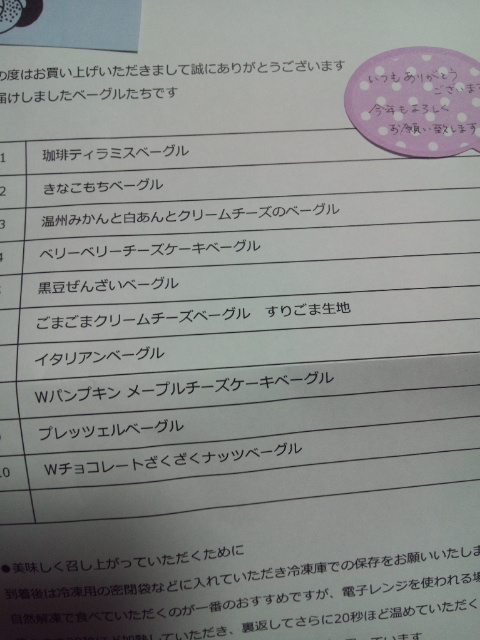 の度はお買い上げいただきまして誠にありがとうございます
届けしましたベーグルたちです
いつもありがとう
ございます
今年もよろしく
お願い致します
1 珈琲ティラミスベーグル
2 きなこもちベーグル
3 温州みかんと白あんとクリームチーズのベーグル
4 ベリーベリーチーズケーキベーグル
黒豆ぜんざいベーグル
ごまごまクリームチーズベーグル すりごま生地
イタリアンベーグル
Wパンプキン メープルチーズケーキベーグル
プレッツェルベーグル
10 Wチョコレートざくざくナッツベーグル
●美味しく召し上がっていただくために
到着後は冷凍用の密閉袋などに入れていただき冷凍庫での保存をお願いいたしま
自然解凍で食べていただくのが一番のおすすめですが、電子レンジを使われる場
していただき、裏返してさらに20秒ほど温めていただく
ています